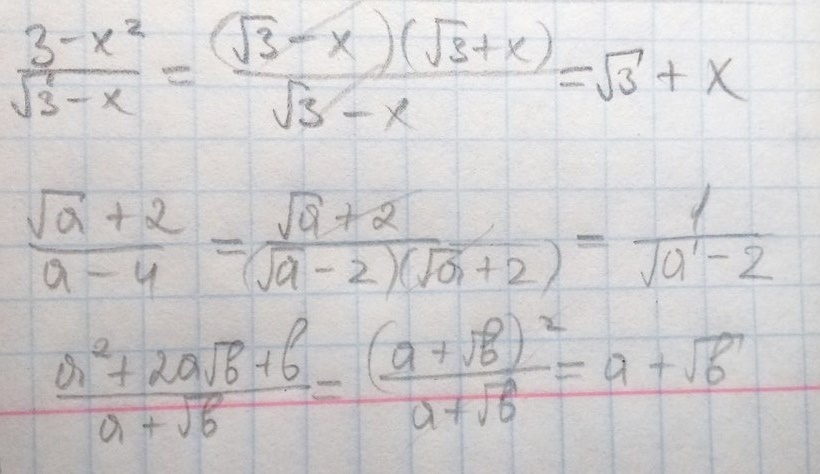 (3-x²)/(√3-x) = ((√3-x)(√3+x))/(√3-x) = √3 + x
(√a+2)/(a-4) = (√a+2)/((√a-2)(√a+2)) = 1/(√a-2)
(a²+2a√b+b)/(a+√b) = (a+√b)²/(a+√b) = a+√b